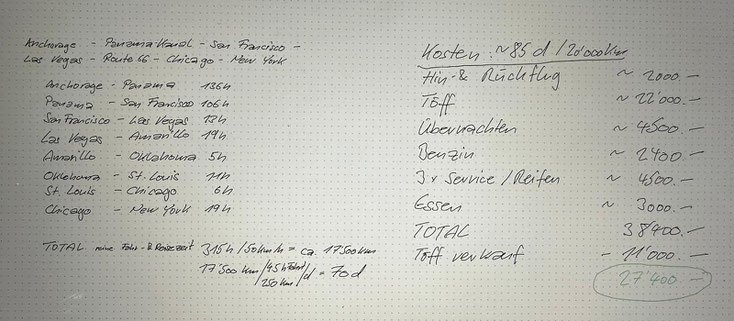 Anchorage - Panama-Kanal - San Francisco -
Las Vegas - Route 66 - Chicago - New York
Anchorage - Panama 136h
Panama - San Francisco 106h
San Francisco - Las Vegas 13h
Las Vegas - Amarillo 19h
Amarillo - Oklahoma 5h
Oklahoma - St. Louis 11h
St. Louis - Chicago 6h
Chicago - New York 19h
TOTAL reine Fahr- & Reisezeit 315h/50km/h = ca. 17'500km
17'500 km/4.5h Fahrt/d = 70d
250km
Kosten: ~85d/20'000km
Hin- & Rückflug ~ 2000.-
Töff ~ 22'000.-
Übernachten ~ 4500.-
Benzin ~ 2400.-
3x Service/Reifen ~ 4500.-
Essen ~ 3000.-
TOTAL 38'400.-
Töff verkauf - 11'000.-
27'400.-